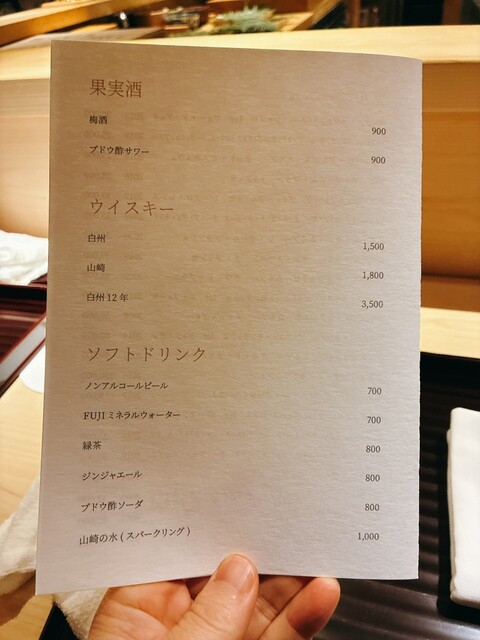 果実酒
梅酒 900
ブドウ酢サワー 900
ウイスキー
白州 1,500
山崎 1,800
白州 12 年 3,500
ソフトドリンク
ノンアルコールビール 700
FUJI ミネラルウォーター 700
緑茶 800
ジンジャエール 800
ブドウ酢ソーダ 800
山崎の水 ( スパークリング ) 1,000